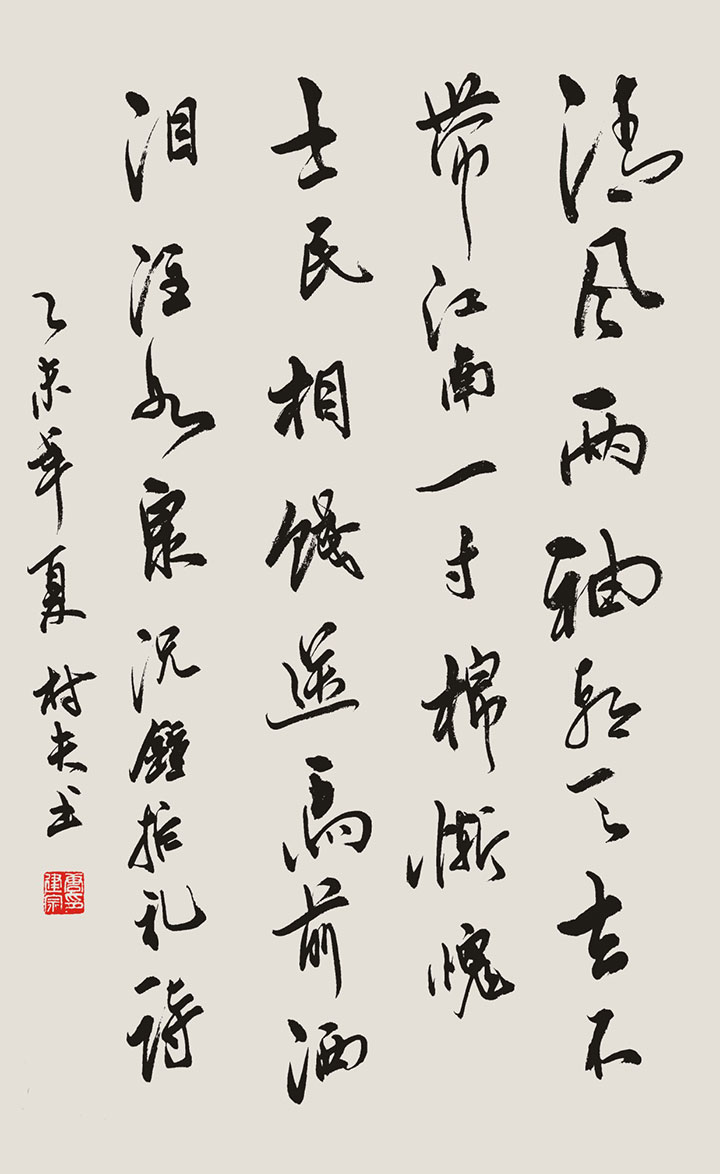 清风两袖朝天去不
帶江南一寸棉慚愧
士民相餞送馬前洒
泪注如泉况鍾拒礼詩
乙未年夏村夫书